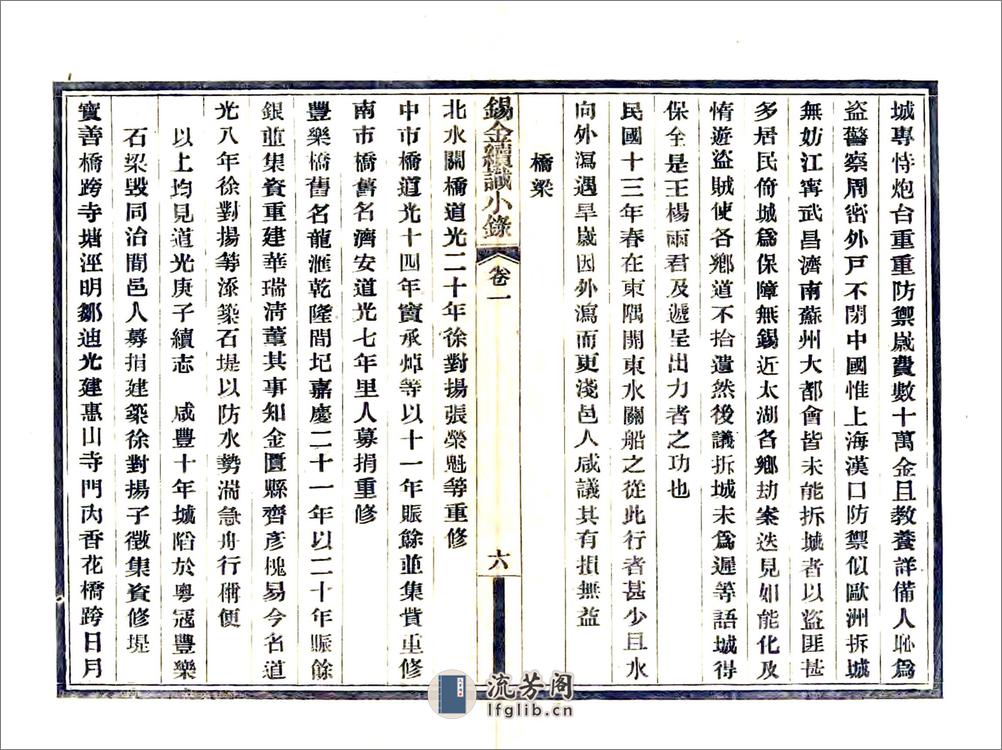 城專恃炮台重重防禦歲費數十萬金且教養詳備人恥爲
盜警察周密外戸不閉中國惟上海漢口防禦似歐洲拆城
無妨江寗武昌濟南蘇州大都會皆未能拆城者以盜匪甚
多居民倚城爲保障無錫近太湖各鄉劫案迭見如能化及
惰遊盜賊使各鄉道不拾遺然後議拆城未爲遲等語城得
保全是王楊兩君及遞呈出力者之功也
民國十三年春在東隅開東水關船之從此行者甚少且水
向外瀉遇旱歲因外瀉而更淺邑人咸議其有損無益
橋梁
錫金續識小錄
卷一
六
北水關橋道光二十年徐對揚張榮魁等重修
中市橋道光十四年竇承焯等以十一年賑餘並集貲重修
南市橋舊名濟安道光七年里人募捐重修
豐樂橋舊名龍滙乾隆間圮嘉慶二十一年以二十年賑餘
銀並集資重建華瑞淸董其事知金匱縣齊彥槐易今名道
光八年徐對揚等添築石堤以防水勢湍急舟行稱便
以上均見道光庚子續志 咸豐十年城陷於粵冦豐樂
石梁毀同治間邑人募捐建築徐對揚子徵集資修堤
寶善橋跨寺塘涇明鄒迪光建惠山寺門內香花橋跨日月
流芳阁
lfglib.cn